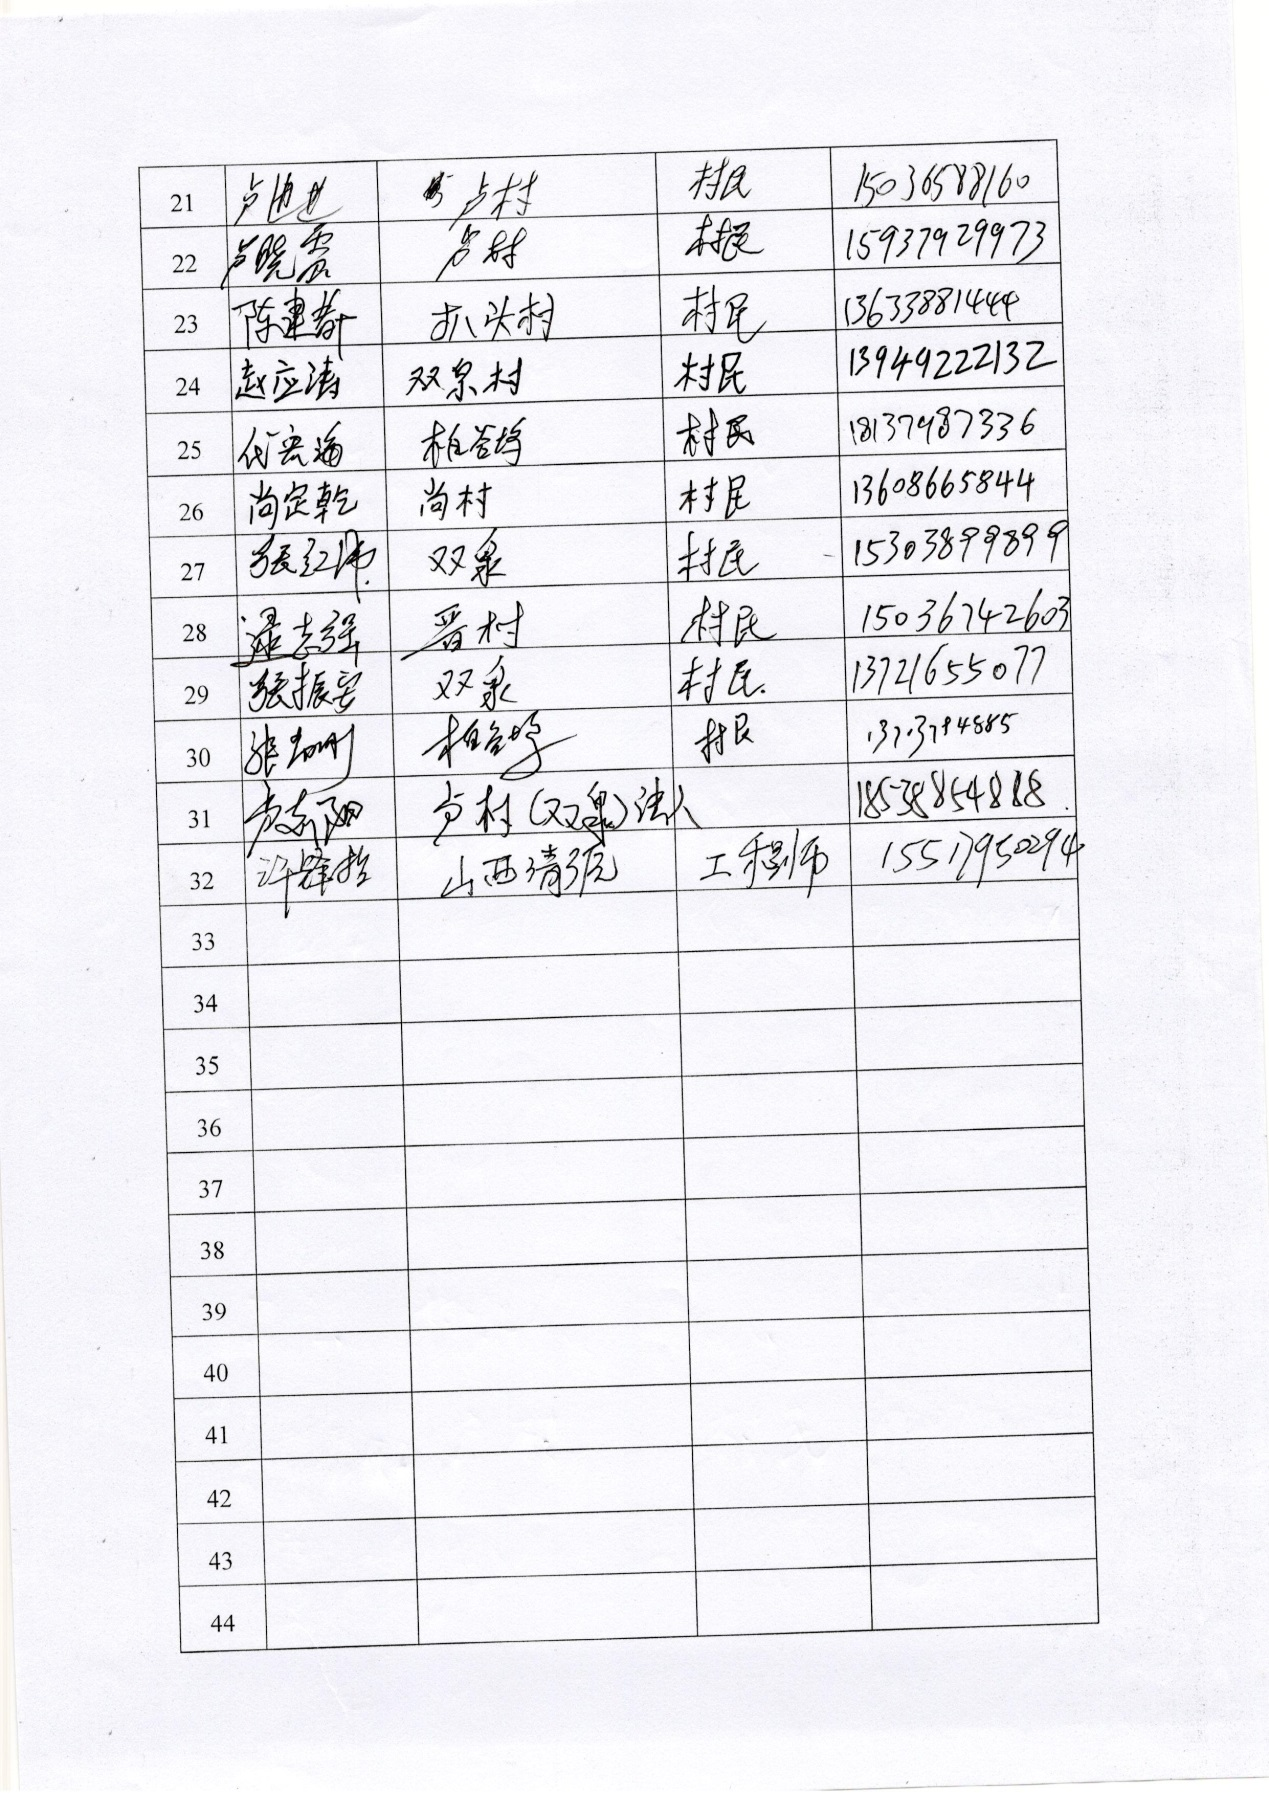 21 卢 卢村 村民 15036588160
22 卢晓雷 卢村 村民 15937929973
23 陈建 扒头村 村民 13633881444
24 赵应涛 双泉村 村民 13949222132
25 代宏海 柏谷坞 村民 18137987336
26 尚定乾 尚村 村民 13608665844
27 张红伟 双泉 村民 15303899899
28 梁志强 晋村 村民 15036742603
29 张振安 双泉 村民 13721655077
30 张 柏谷坞 村民
31 卢村(双泉)法人 18538854888
32 许 山西清 工程师 15517950294
33
34
35
36
37
38
39
40
41
42
43
44